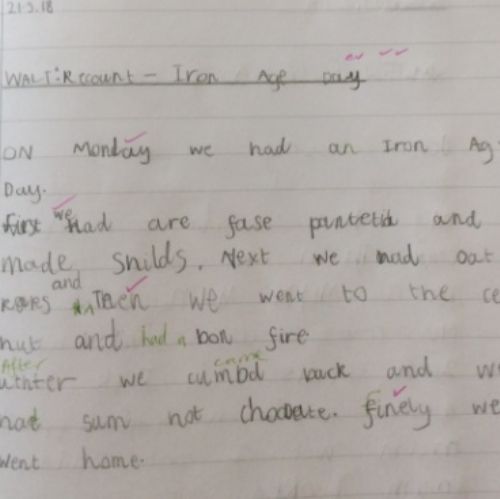 21.5.18
WALT: Rccount - Iron Age Day
ON Monday we had an Iron Ag
Day.
First we had are fase panteid and
made snilds. Next we mad oat
and
Then we went to the ce
hut and had a bon fire
After came
we cumbd back and w
hat sum hot . finely we
went home.